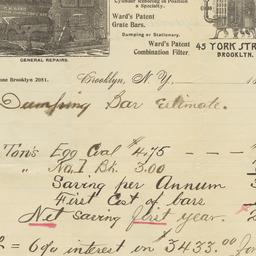 Cylinder Reboring in Position
a Specialty.
Ward's Patent
Grate Bars.
Dumping or Stationary.
Ward's Patent
Combination Filter.
GENERAL REPAIRS.
45 YORK STR
BROOKLYN.
one Brooklyn 2051.
Brooklyn, N. Y.
Dumping Bar Estimate.
Tons Egg Coal $4.75
" No. 1 Bk. 3.00
Saving per Annum
First Cost of bars
Net saving first year.
= 6% interest on $3433.00 for